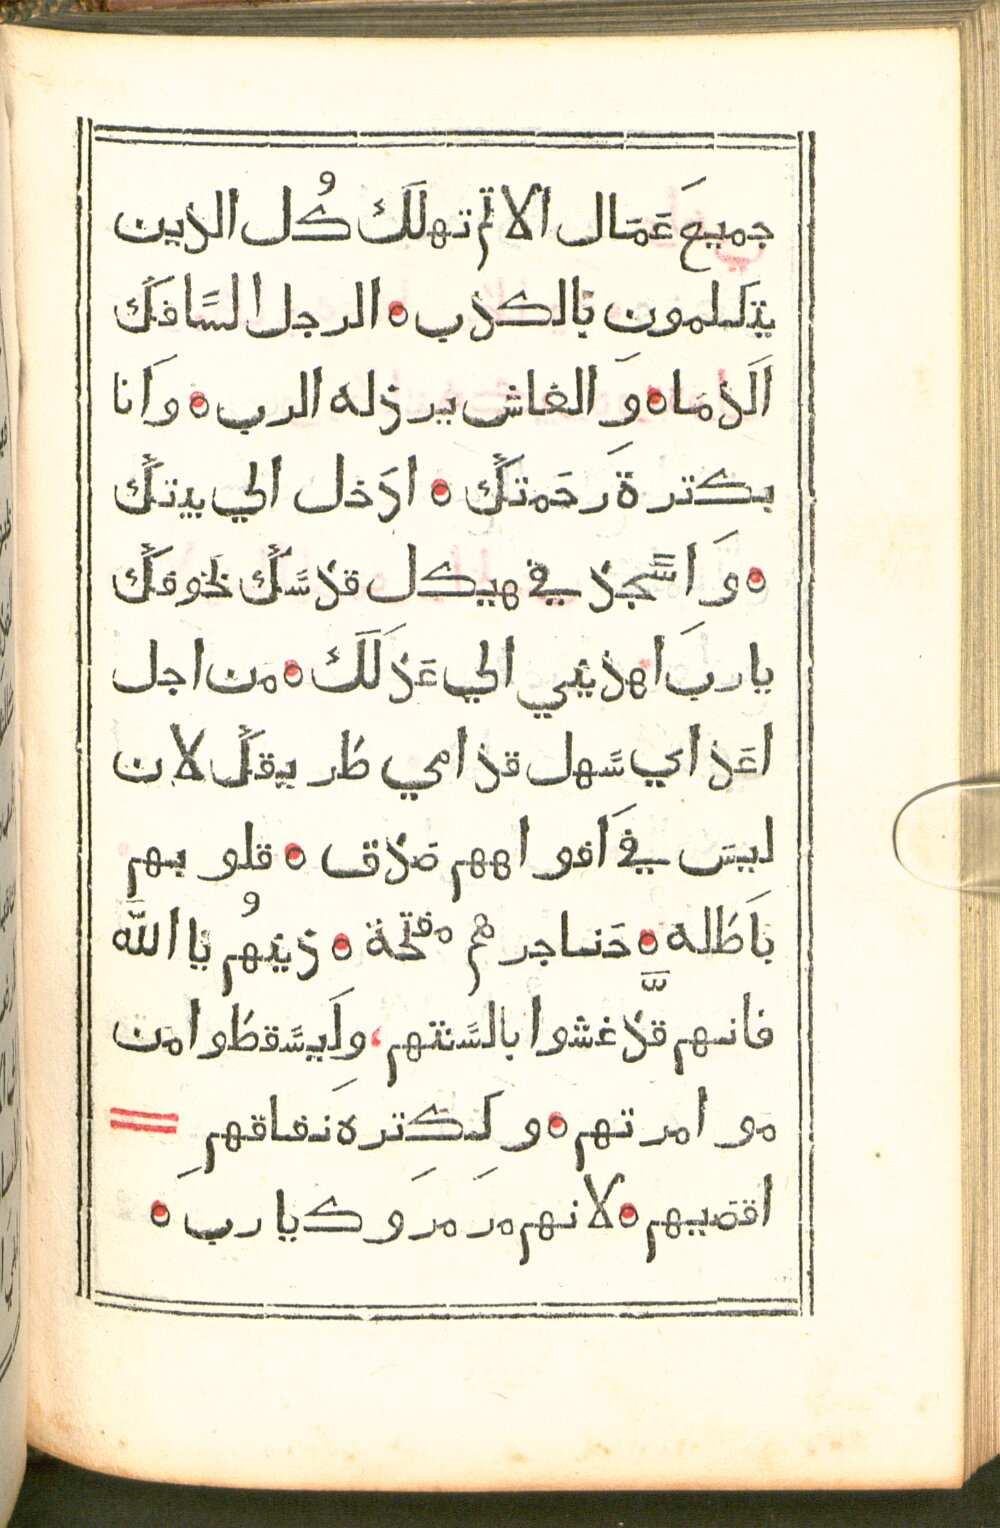 جميعَ عَمَال الاثم تهلَك كُل الذين
يتَكلمون بالكذب ه الرجل السَّافكَ
اَلدمَا ه وَ الغاش يرذله الرب ه واَنا
بكترة رَحَمتكَ ه ادَخل الي بيتكَ
ه وَ اسَّجد في هيكل قدسَّكَ لخوفكَ
يارب اَهديني الي عَدلَك ه من اجل
اعَداي سَّهل قدامي طريقكَ لان
ليسَ في اَفواههم صَدق ه قلوبهم
باَطله ه حَناجرهم مفتحة ه دينهُم يا اللّه
فانهم قد غشوا بالسَّنتهم، ولَيسَّقطوا من
موامرتهم ه ولَكترة نفاقهم
اقصَيهم ه لانهم مرَمرَوك يا ربِ ه